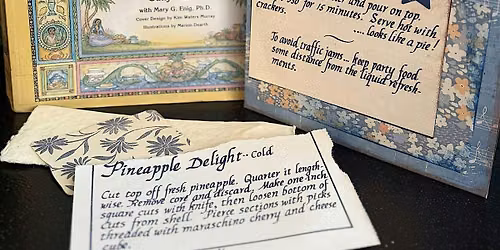 with Mary G. Enig, Ph.D.
Cover Design by Kim Waters Murray
Illustrations by Marion Dearth
and pour on top.
350 for 15 minutes. Serve hot with
crackers.
....looks like a pie!
To avoid traffic jams... keep party food
some distance from the liquid refresh-
ments.
Pineapple Delight -- cold
Cut top off fresh pineapple. Quarter it length-
wise. Remove core and discard. Make one-inch
square cuts with knife, then loosen bottom of
cuts from shell. Pierce sections with picks
threaded with maraschino cherry and cheese
cube.